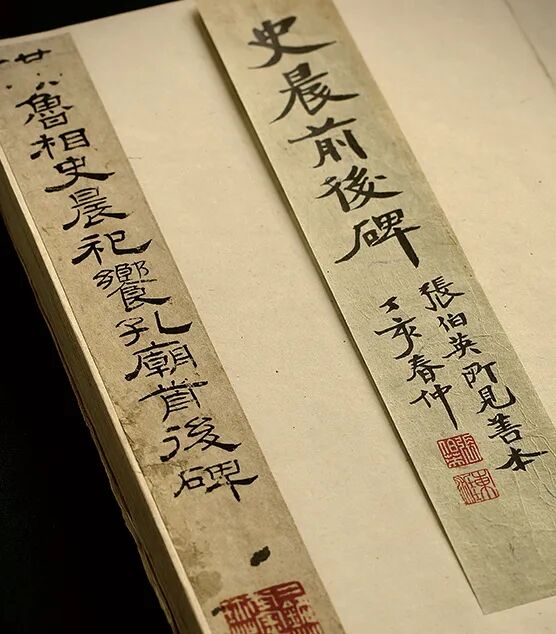 史晨前後碑
張伯英所見善本
丁亥春仲
魯相史晨祀饗孔廟前後碑